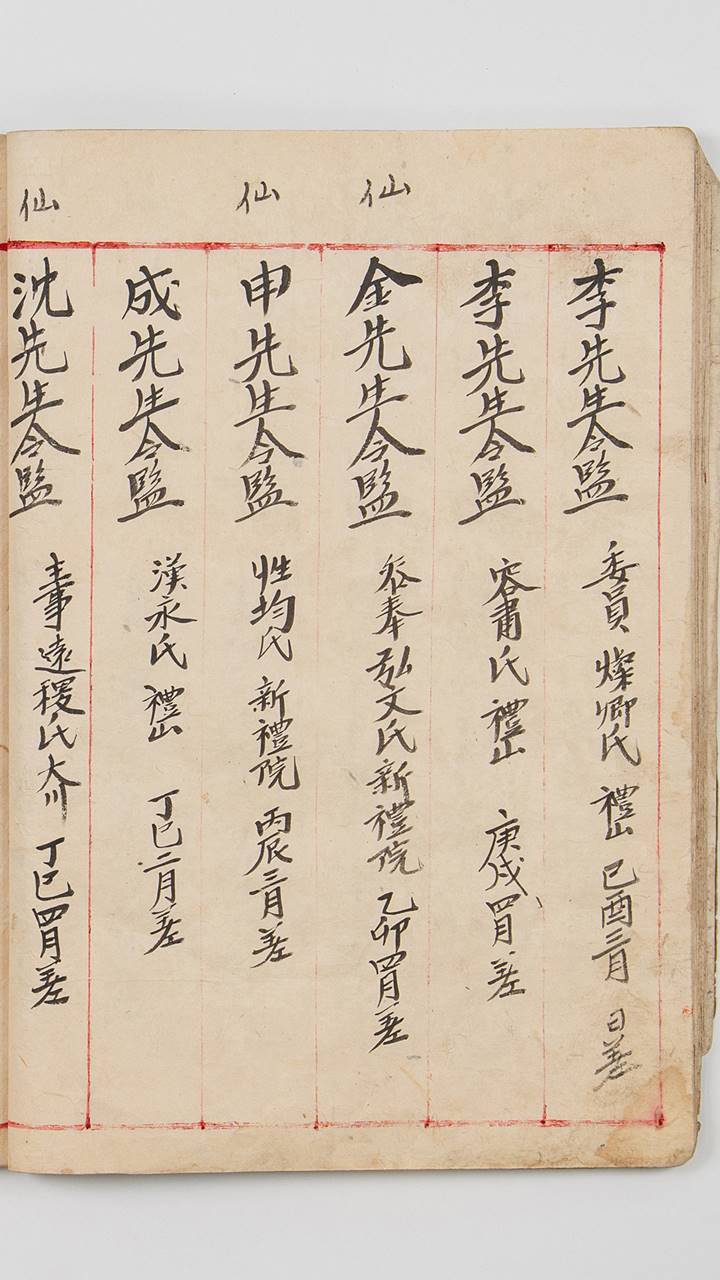 李先生令監 委員 燦卿氏 禮山 己酉三月 日差
李先生令監 容肅氏 禮山 庚戌四月 差
仙 金先生令監 參奉 弘文氏 新禮院 乙卯四月 差
仙 申先生令監 性均氏 新禮院 丙辰三月 差
成先生令監 漢永氏 禮山 丁巳二月 差
仙 沈先生令監 主事 遠稷氏 大川 丁巳四月 差